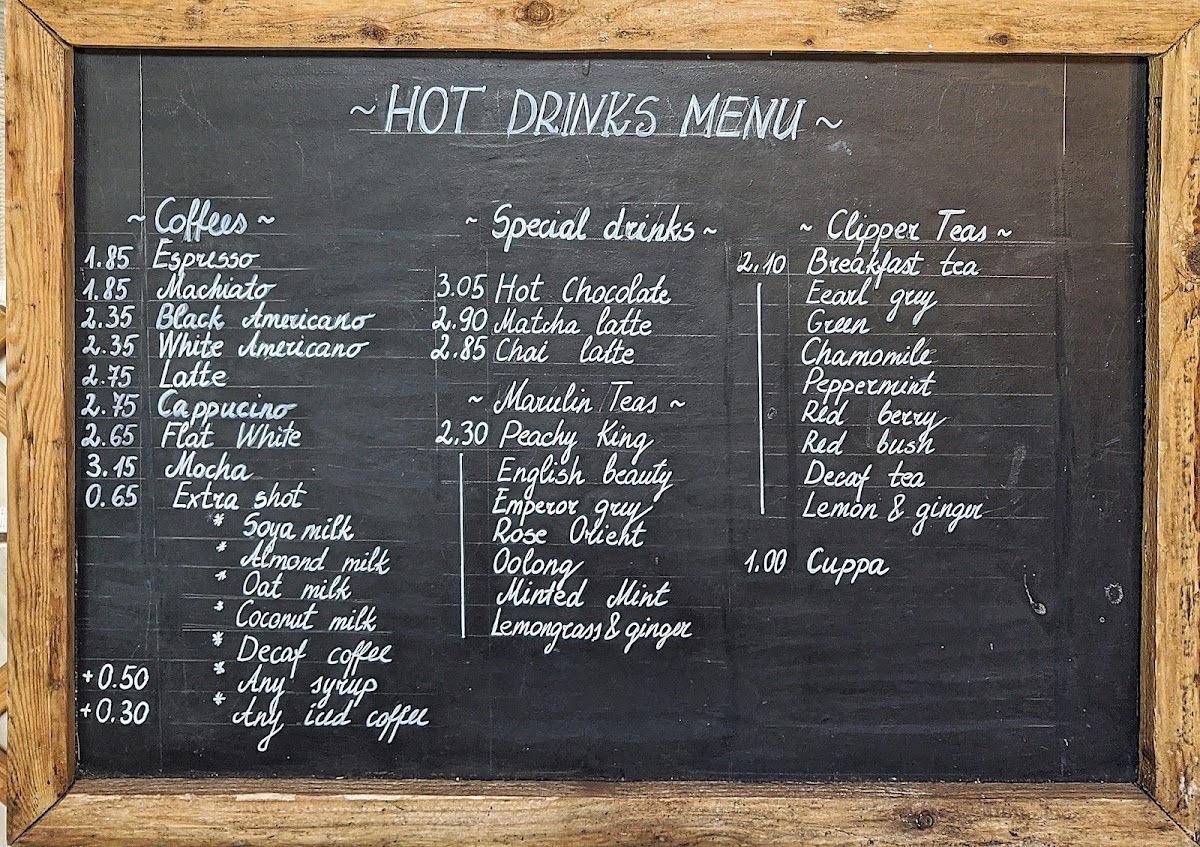 ~ HOT DRINKS MENU ~
~ Coffees ~
1.85 Espresso
1.85 Machiato
2.35 Black Americano
2.35 White Americano
2.75 Latte
2.75 Cappucino
2.65 Flat White
3.15 Mocha
0.65 Extra shot
* Soya milk
* Almond milk
* Oat milk
* Coconut milk
* Decaf coffee
+0.50 * Any syrup
+0.30 * Any iced coffee
~ Special drinks ~
3.05 Hot Chocolate
2.90 Matcha latte
2.85 Chai latte
~ Marulin Teas ~
2.30 Peachy King
English beauty
Emperor grey
Rose Orient
Oolong
Minted Mint
Lemongrass & ginger
~ Clipper Teas ~
2.10 Breakfast tea
Eearl grey
Green
Chamomile
Peppermint
Red berry
Red bush
Decaf tea
Lemon & ginger
1.00 Cuppa